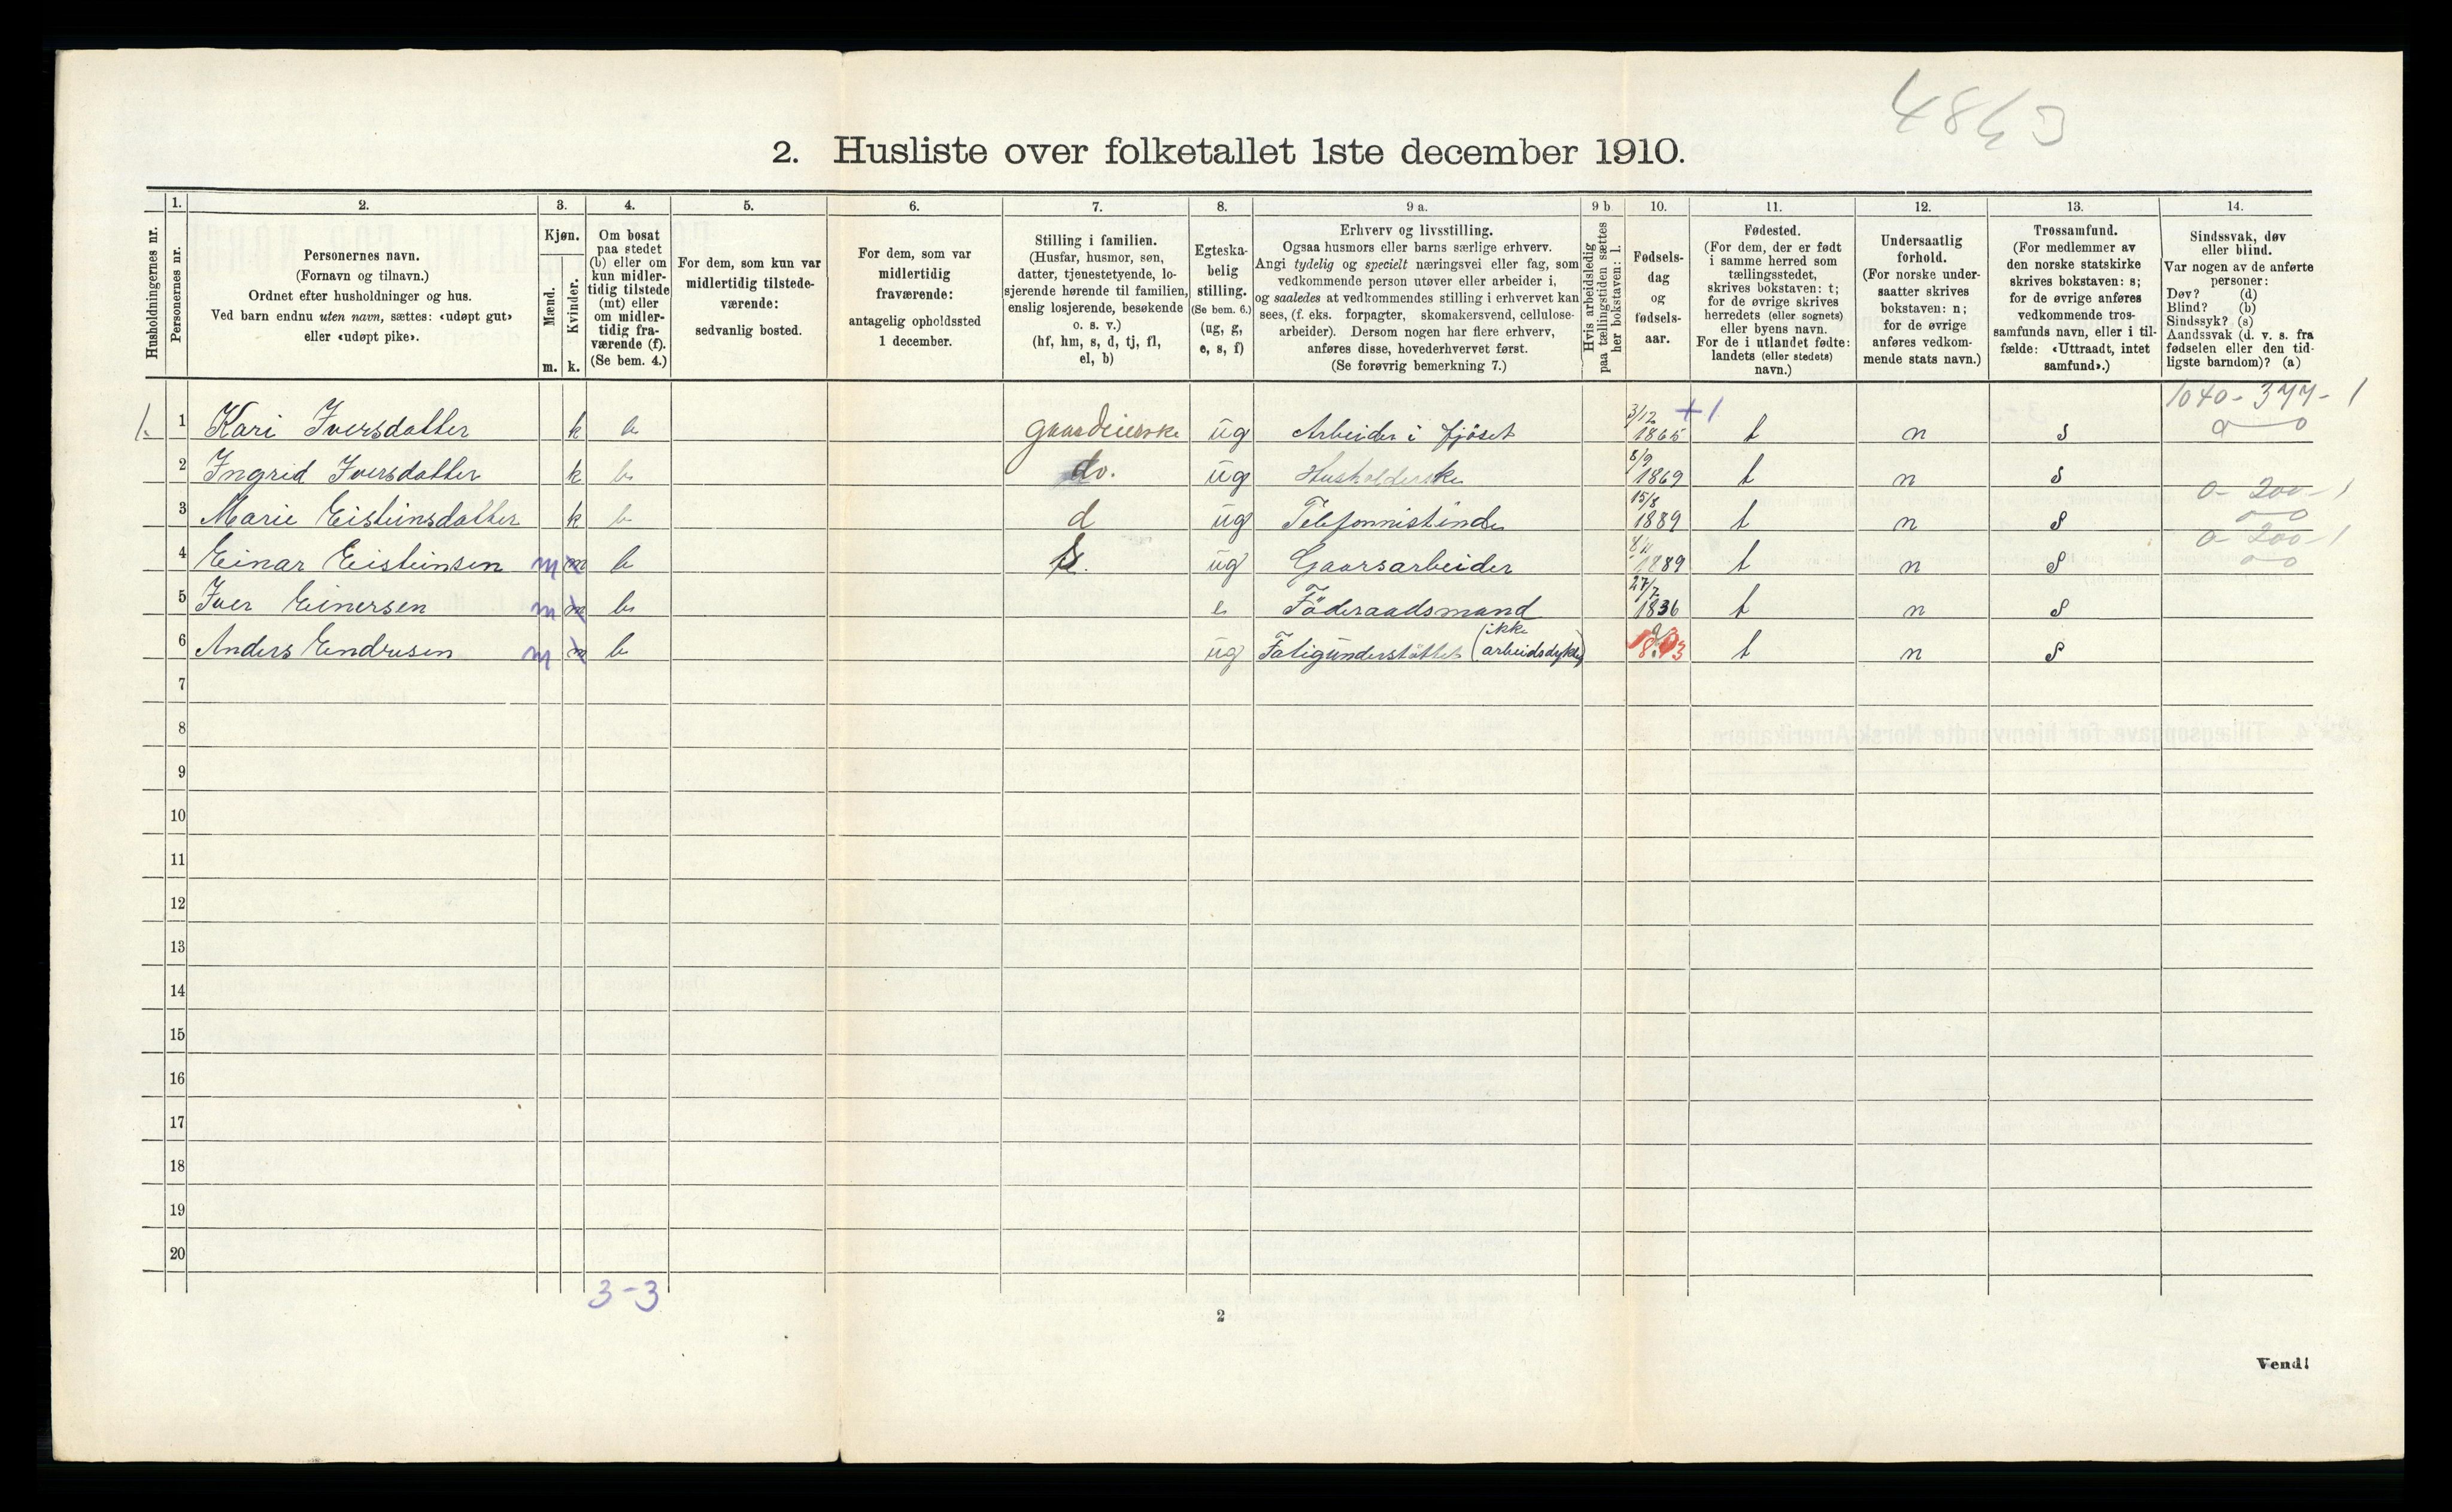 4863
2. Husliste over folketallet 1ste december 1910.
1. 2. 3. 4. 5. 6. 7. 8. 9 a. 9 b 10. 11. 12. 13. 14.
Husholdningernes nr.
Personernes nr.
Personernes navn.
(Fornavn og tilnavn.)
Ordnet efter husholdninger og hus.
Ved barn endnu uten navn, sættes: «udøpt gut»
eller «udøpt pike».
Kjøn.
Mænd.
Kvinder.
m. k.
Om bosat
paa stedet
(b) eller om
kun midler-
tidig tilstede
(mt) eller
om midler-
tidig fra-
værende (f).
(Se bem. 4.)
For dem, som kun var
midlertidig tilstede-
værende:
sedvanlig bosted.
For dem, som var
midlertidig
fraværende:
antagelig opholdssted
1 december.
Stilling i familien.
(Husfar, husmor, søn,
datter, tjenestetyende, lo-
sjerende hørende til familien,
enslig losjerende, besøkende
o. s. v.)
(hf, hm, s, d, tj, fl,
el, b)
Egteska-
belig
stilling.
(Se bem. 6.)
(ug, g,
e, s, f)
Erhverv og livsstilling.
Ogsaa husmors eller barns særlige erhverv.
Angi tydelig og specielt næringsvei eller fag, som
vedkommende person utøver eller arbeider i,
og saaledes at vedkommendes stilling i erhvervet kan
sees, (f. eks. forpagter, skomakersvend, cellulose-
arbeider). Dersom nogen har flere erhverv,
anføres disse, hovederhvervet først.
(Se forøvrig bemerkning 7.)
Hvis arbeidsledig
paa tællingstiden sættes
her bokstaven: l.
Fødsels-
dag
og
fødsels-
aar.
Fødested.
(For dem, der er født
i samme herred som
tællingsstedet,
skrives bokstaven: t;
for de øvrige skrives
herredets (eller sognets)
eller byens navn.
For de i utlandet fødte:
landets (eller stedets)
navn.)
Undersaatlig
forhold.
(For norske under-
saatter skrives
bokstaven: n;
for de øvrige
anføres vedkom-
mende stats navn.)
Trossamfund.
(For medlemmer av
den norske statskirke
skrives bokstaven: s;
for de øvrige anføres
vedkommende tros-
samfunds navn, eller i til-
fælde: «Uttraadt, intet
samfund».)
Sindssvak, døv
eller blind.
Var nogen av de anførte
personer:
Døv? (d)
Blind? (b)
Sindssyk? (s)
Aandssvak (d. v. s. fra
fødselen eller den tid-
ligste barndom)? (a)
1040-377-1
1. 1 Kari Iversdatter k b gaardeierske ug Arbeider i fjöset 3/12 1865 +1 t n s
2 Ingrid Iversdatter k b do. ug Husholderske 8/9 1869 t n s
0-200-1
3 Marie Eisteinsdatter k b d ug Telefonnistinde 15/8 1889 t n s
0-200-1
4 Einar Eisteinsen m m b s. ug Gaarsarbeider 1889 t n s
5 Iver Einersen m m b e Föderaadsmand 27/7 1836 t n s
6 Anders Endresen m m b ug Fatigunderstöttet (ikke arbeidsdyktig) t n s
7
8
9
10
11
12
13
14
15
16
17
18
19
20
3-3
2
Vend!